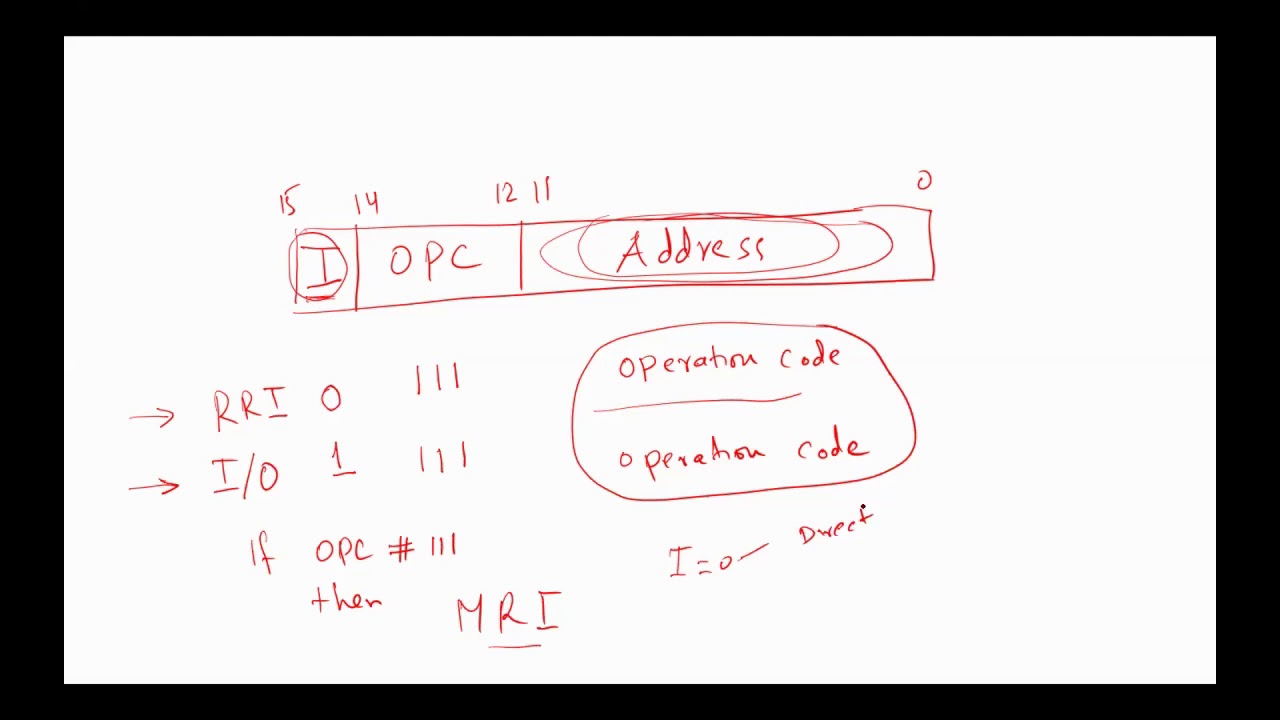 15 14 12 11 0
I OPC Address
RRI 0 111 operation code
I/O 1 111 operation code
If OPC # 111
then MRI
I = 0 Direct